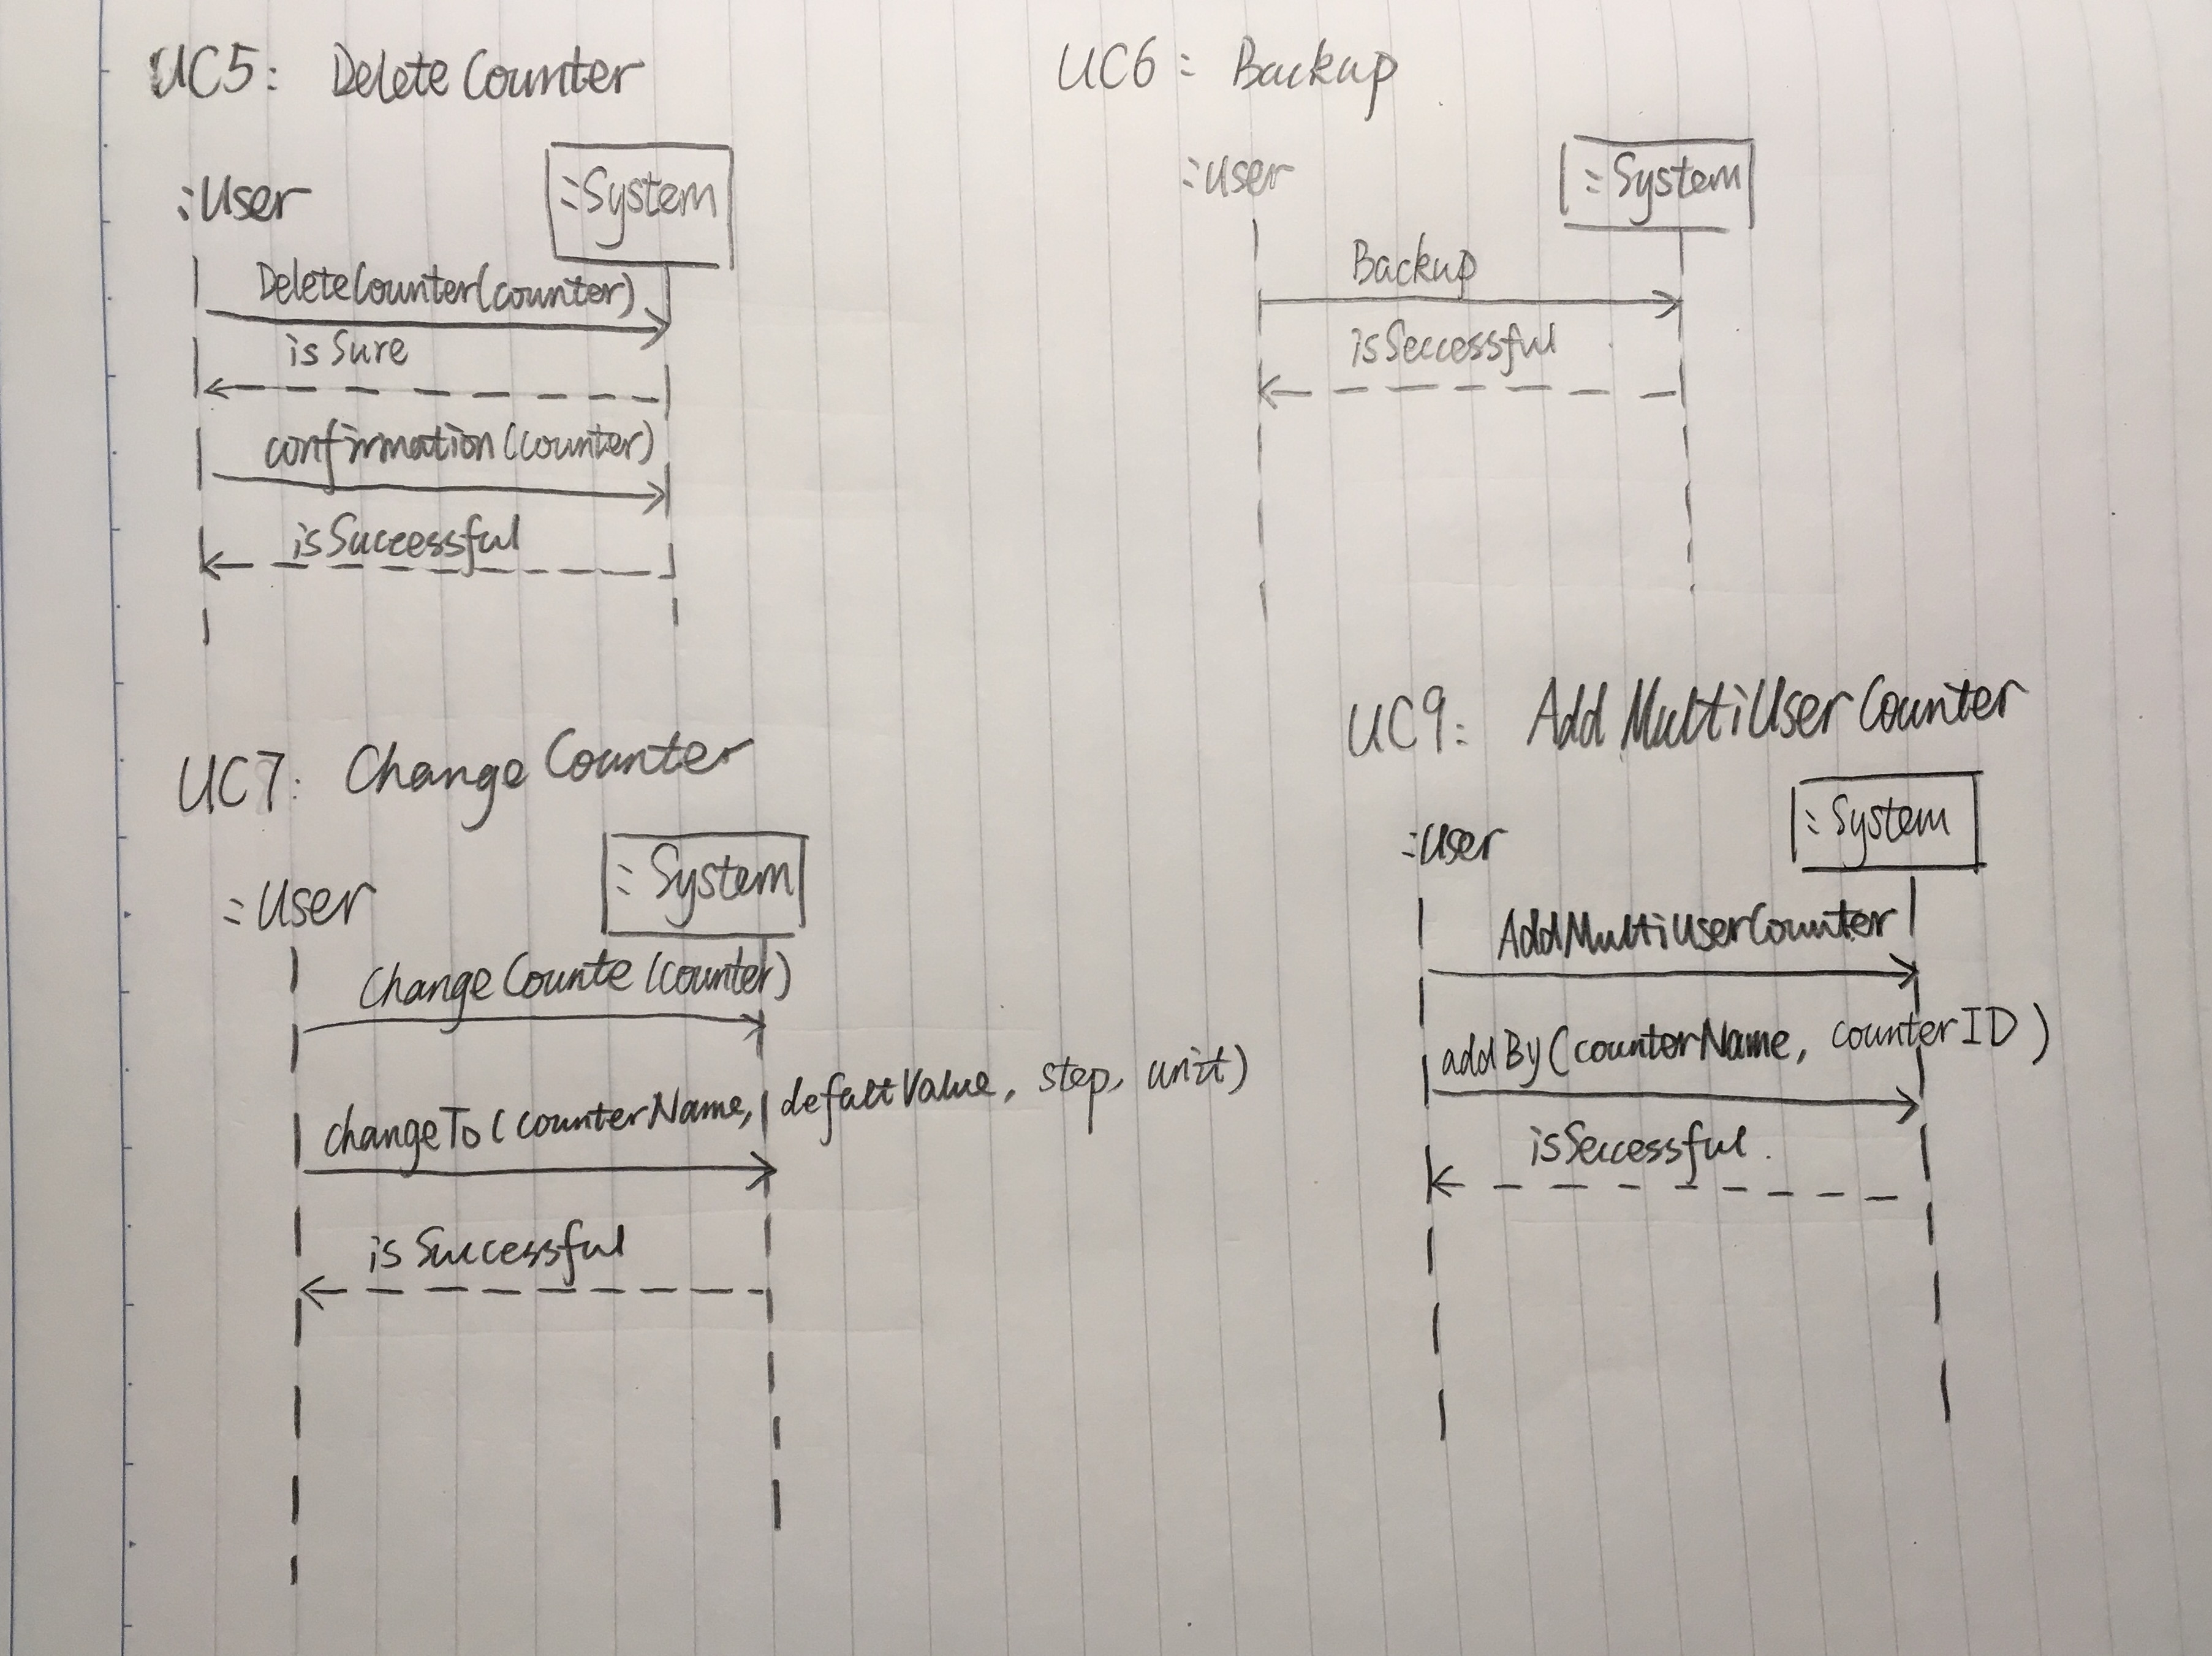 UC5: DeleteCounter
:User
:System
DeleteCounter(counter)
isSure
confirmation(counter)
isSuccessful
UC6: Backup
:User
:System
Backup
isSeccessful
UC7: ChangeCounter
:User
:System
ChangeCounte(counter)
changeTo(counterName, defaltValue, step, unit)
isSuccessful
UC9: AddMultiUserCounter
:User
:System
AddMultiUserCounter
addBy(counterName, counterID)
isSeccessful.